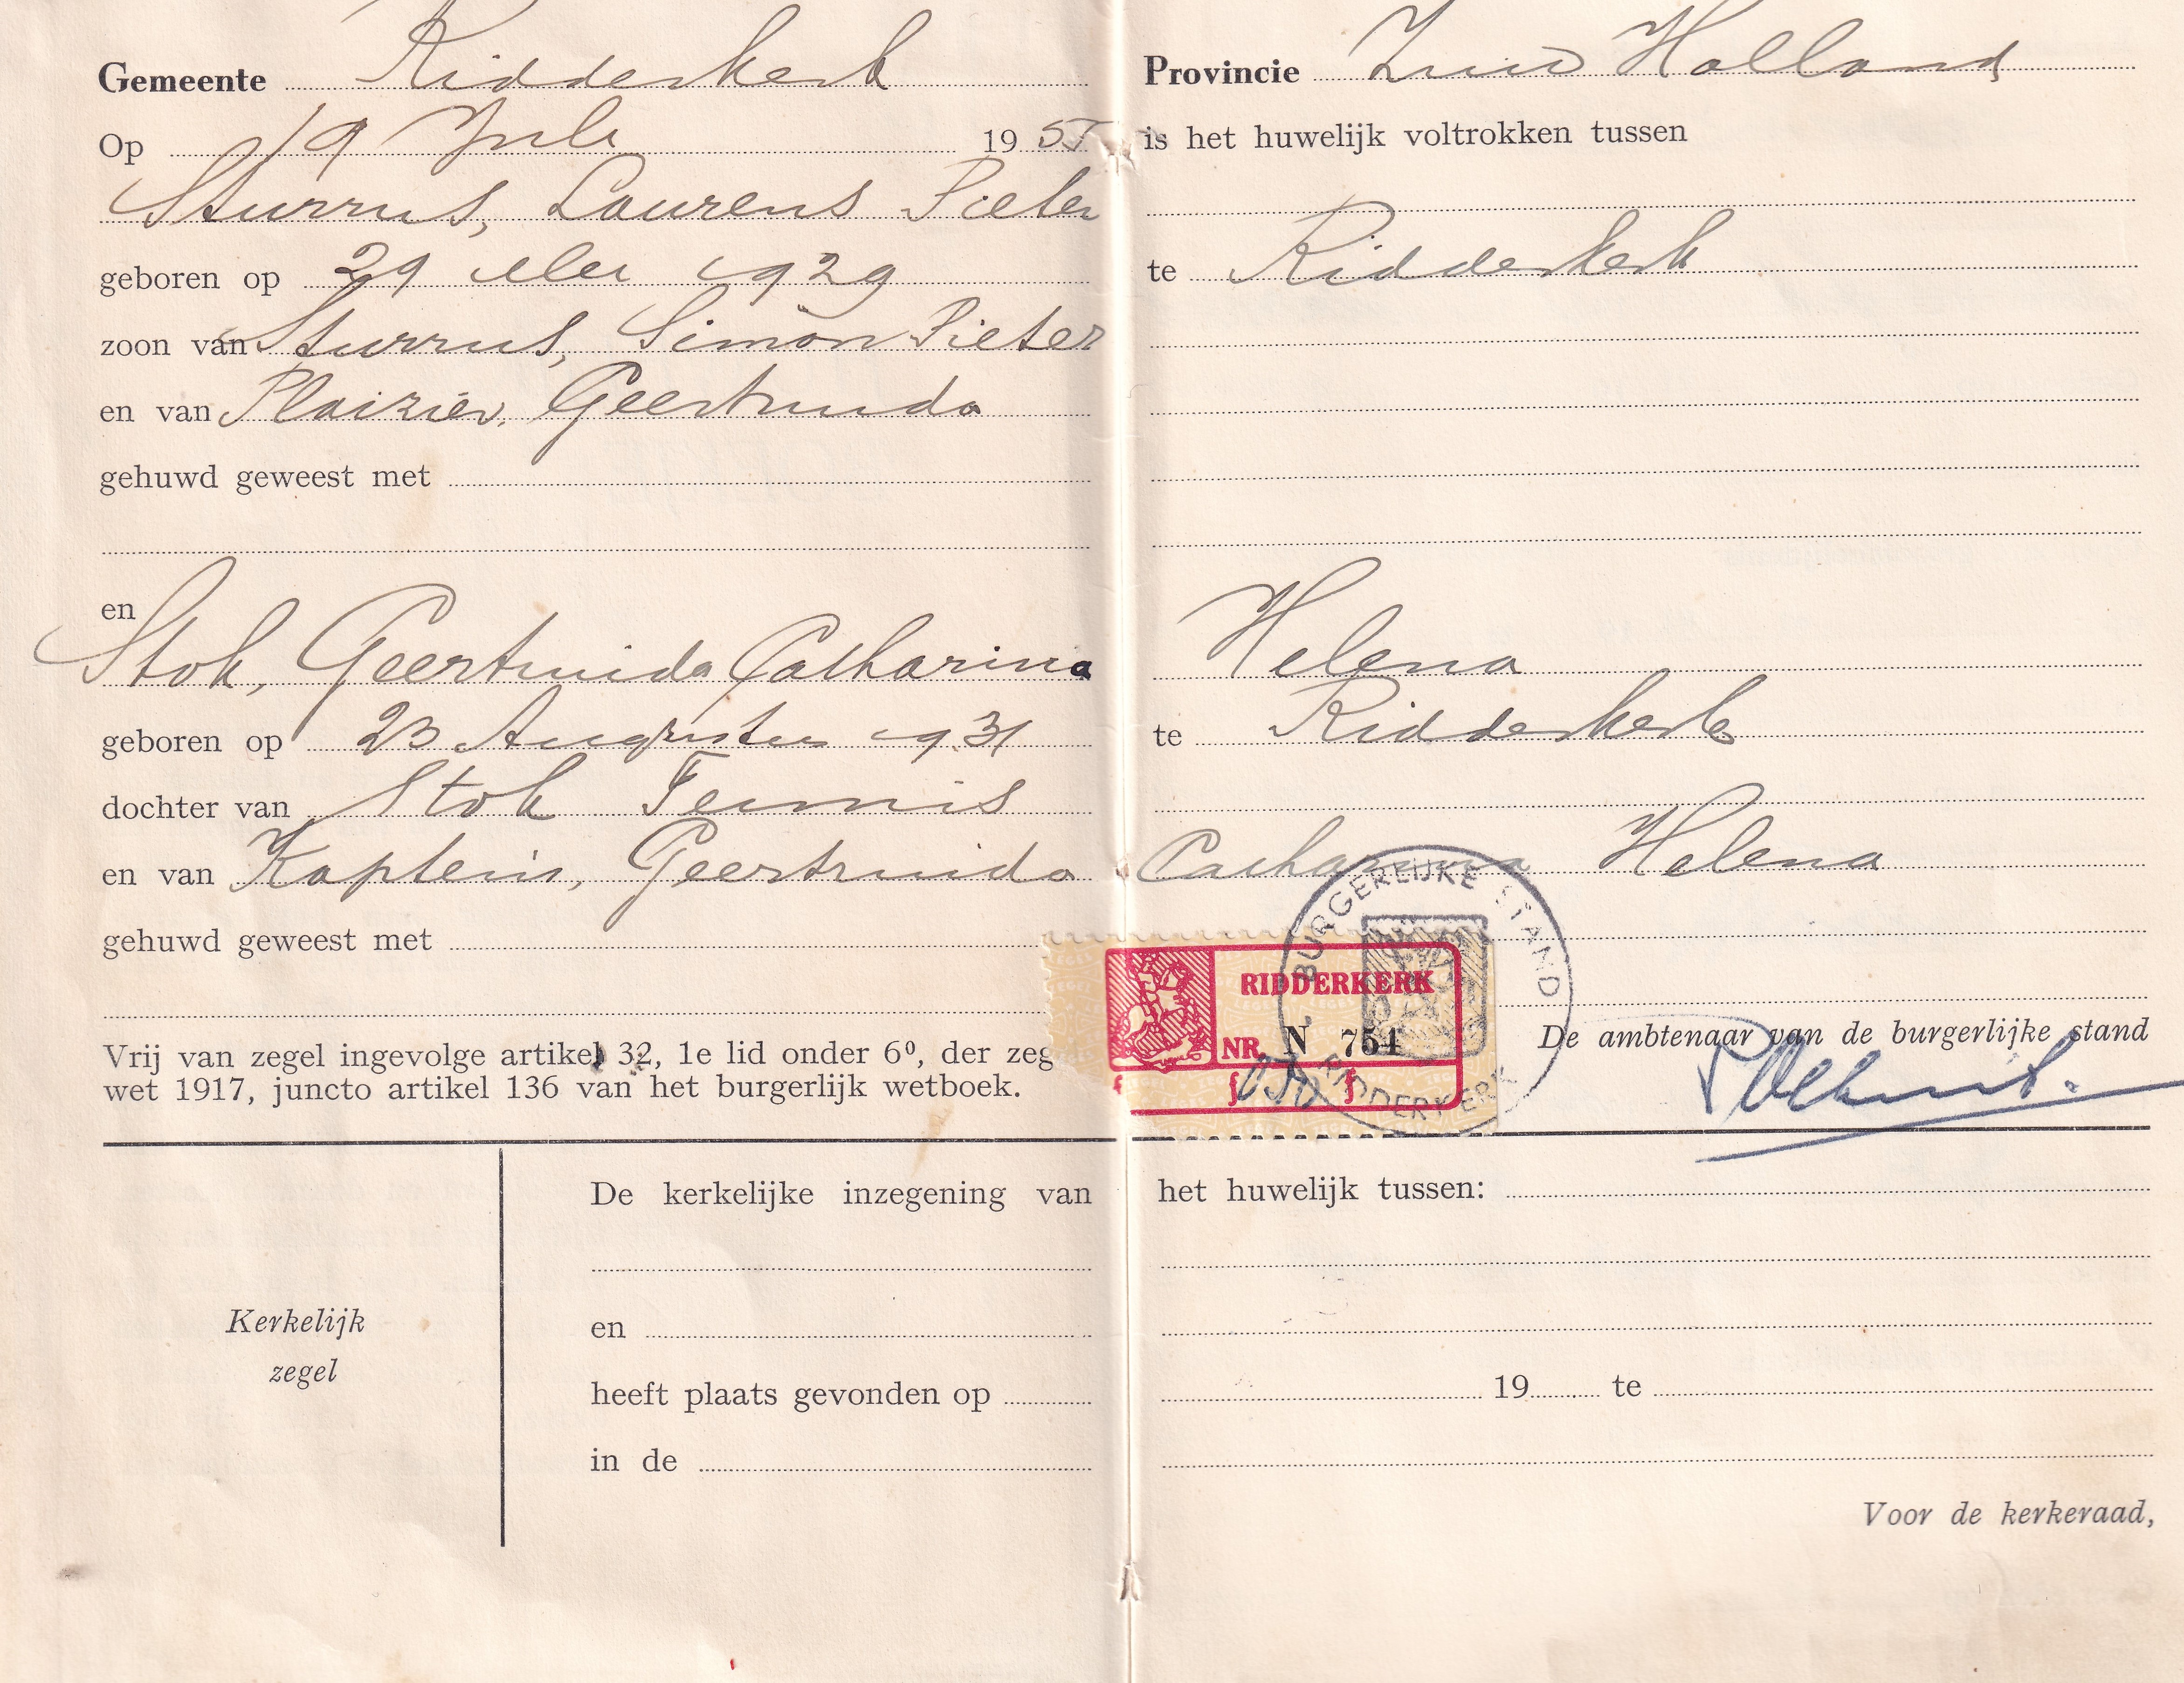 Gemeente Ridderkerk Provincie Zuid Holland
Op 19 Juli 1955 is het huwelijk voltrokken tussen
Sturrus, Laurens Pieter
geboren op 29 Mei 1929 te Ridderkerk
zoon van Sturrus, Simon Pieter
en van Plaizier, Geertruida
gehuwd geweest met
en
Stok, Geertruida Catharina Helena
geboren op 23 Augustus 1931 te Ridderkerk
dochter van Stok Teunis
en van Kaptein, Geertruida Catharina Helena
gehuwd geweest met
BURGERLIJKE STAND
RIDDERKERK
NR. N 754
RIDDERKERK
De ambtenaar van de burgerlijke stand
Vrij van zegel ingevolge artikel 32, 1e lid onder 6⁰, der zeg
wet 1917, juncto artikel 136 van het burgerlijk wetboek.
De kerkelijke inzegening van het huwelijk tussen:
Kerkelijk
zegel
en
heeft plaats gevonden op 19 te
in de
Voor de kerkeraad,